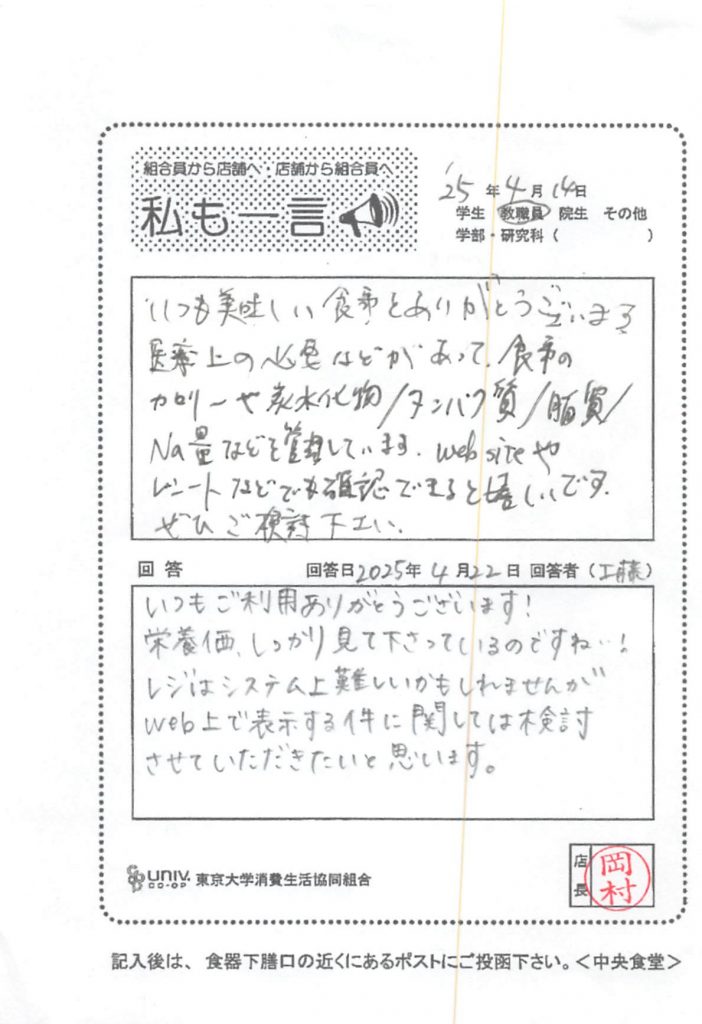 組合員から店舗へ・店舗から組合員へ
私も一言
'25年4月14日
学生 教職員 院生 その他
学部・研究科( )
いつも美味しい食事をありがとうございます
医療上の必要などがあって、食事の
カロリーや炭水化物/タンパク質/脂質/
Na量などを管理しています. web siteや
レシートなどでも確認できると嬉しいです.
ぜひご検討下さい.
回答 回答日2025年4月22日 回答者(工藤)
いつもご利用ありがとうございます!
栄養価、しっかり見て下さっているのですね…!
レジはシステム上難しいかもしれませんが
web上で表示する件に関しては検討
させていただきたいと思います。
UNIV. CO-OP 東京大学消費生活協同組合
店長 岡村
記入後は、食器下膳口の近くにあるポストにご投函下さい。<中央食堂>